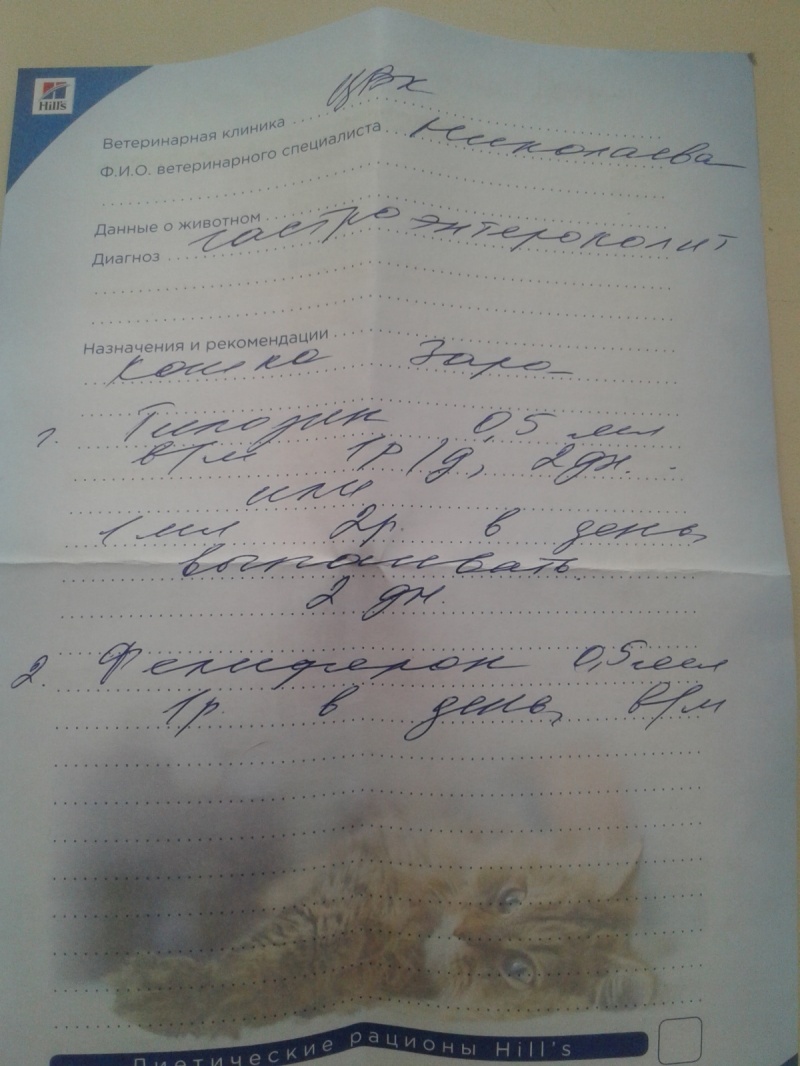 Hill's
Ветеринарная клиника ЦВК
Ф.И.О. ветеринарного специалиста Николаева
Данные о животном
Диагноз гастроэнтероколит
Назначения и рекомендации
кошка Зара
1. Тилозин 0,5 мл
в/м 1р/д, 2дн.
или
1 мл 2р. в день
выпаивать
2 дн.
2. Фелиферон 0,5 мл
1р. в день, в/м
Диетические рационы Hill's